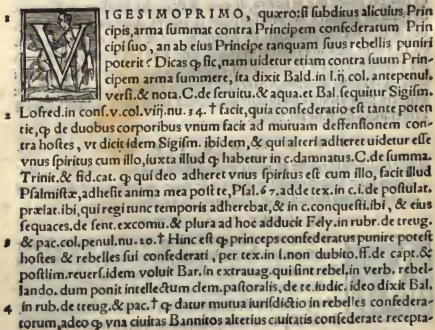 1 VIGESIMOPRIMO, quæro: si subditus alicuius Prin
cipis, arma summat contra Principem confederatum Prin
cipi suo, an ab eius Principe tanquam suus rebellis puniri
poterit? Dicas ꝙ sic, nam uidetur etiam contra suum Prin-
cipem arma summere, ita dixit Bald. in l. ij. col. antepenul.
versi. & nota. C. de seruitu. & aqua. et Bal. sequitur Sigism.
2 Lofred. in cons. v. col. viij. nu. 34. † facit, quia confederatio est tante poten
tie, ꝙ de duobus corporibus vnum facit ad mutuam deffensionem con-
tra hostes, vt dicit idem Sigism. ibidem, & qui alteri adheret uidetur esse
vnus spiritus cum illo, iuxta illud ꝙ habetur in c. damnatus. C. de summa.
Trinit. & fid. cat. ꝙ qui deo adheret vnus spiritus est cum illo, facit illud
Psalmistæ, adhesit anima mea post te, Psal. 67. adde tex. in c. i. de postulat.
prælat. ibi, qui regi tunc temporis adherebat, & in c. conquesti. ibi, & eius
sequaces. de sent. excomu. & plura ad hoc adducit Fely. in rubr. de treug.
3 & pac. col. penul. nu. 10. † Hinc est ꝙ princeps confederatus punire potest
hostes & rebelles sui confederati, per tex. in l. non dubito. ff. de capt. &
postlim. reuers. idem voluit Bar. in extrauag. qui sint rebel. in verb. rebel-
lando. dum ponit intellectum clem. pastoralis, de re. iudic. ideo dixit Bal.
4 in rub. de treug. & pac. † ꝙ datur mutua iurisdictio in rebelles confedera-
torum, adeo ꝙ vna ciuitas Bannitos alterius ciuitatis confederate recepta-